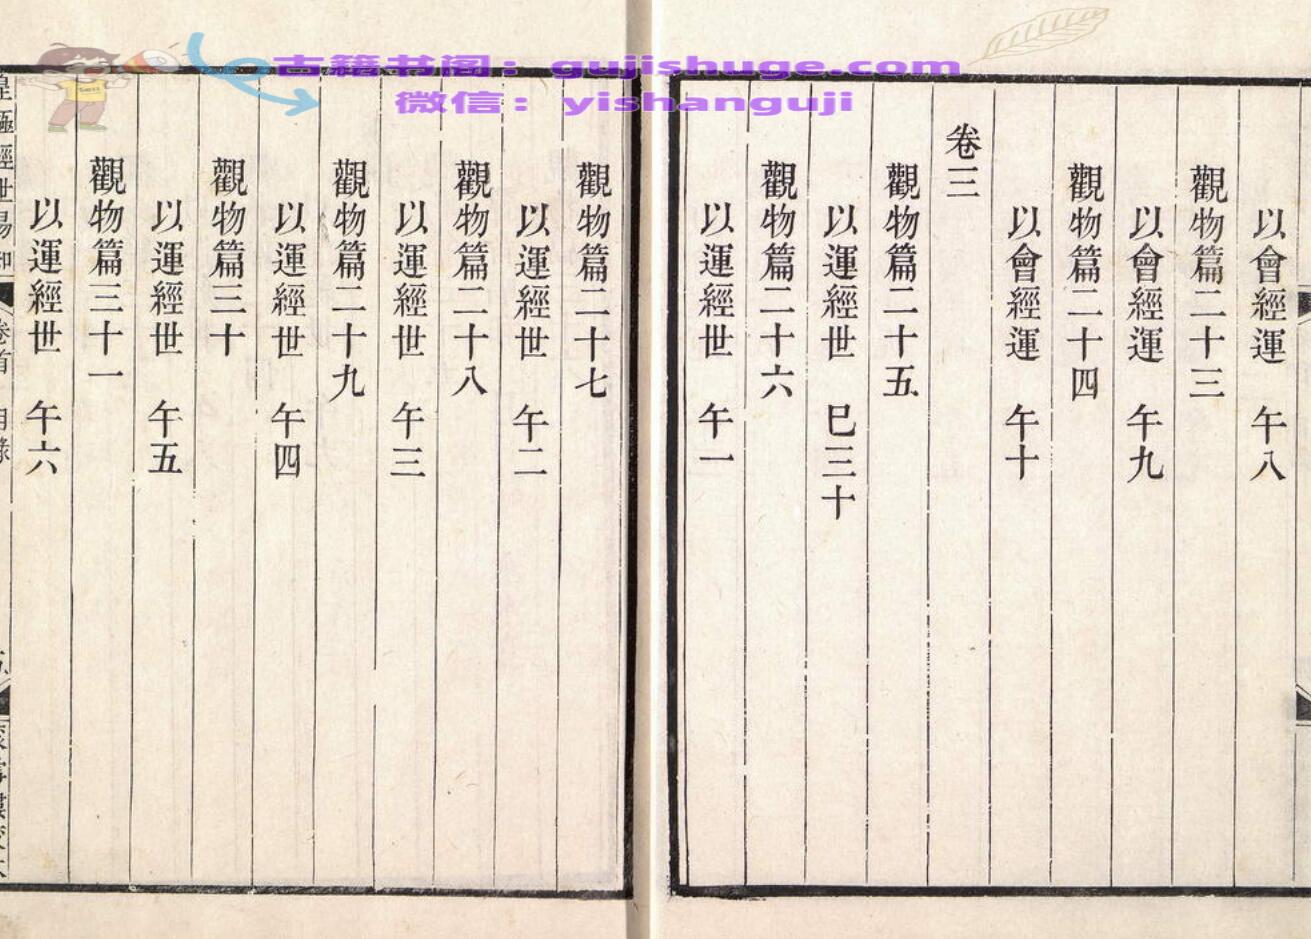 古籍书阁：gujishuge.com
微信：yishanguji
以會經運　午八
觀物篇二十三
以會經運　午九
觀物篇二十四
以會經運　午十
卷三
觀物篇二十五
以運經世　巳三十
觀物篇二十六
以運經世　午一
觀物篇二十七
以運經世　午二
觀物篇二十八
以運經世　午三
觀物篇二十九
以運經世　午四
觀物篇三十
以運經世　午五
觀物篇三十一
以運經世　午六
皇極經世易知　卷首　目錄